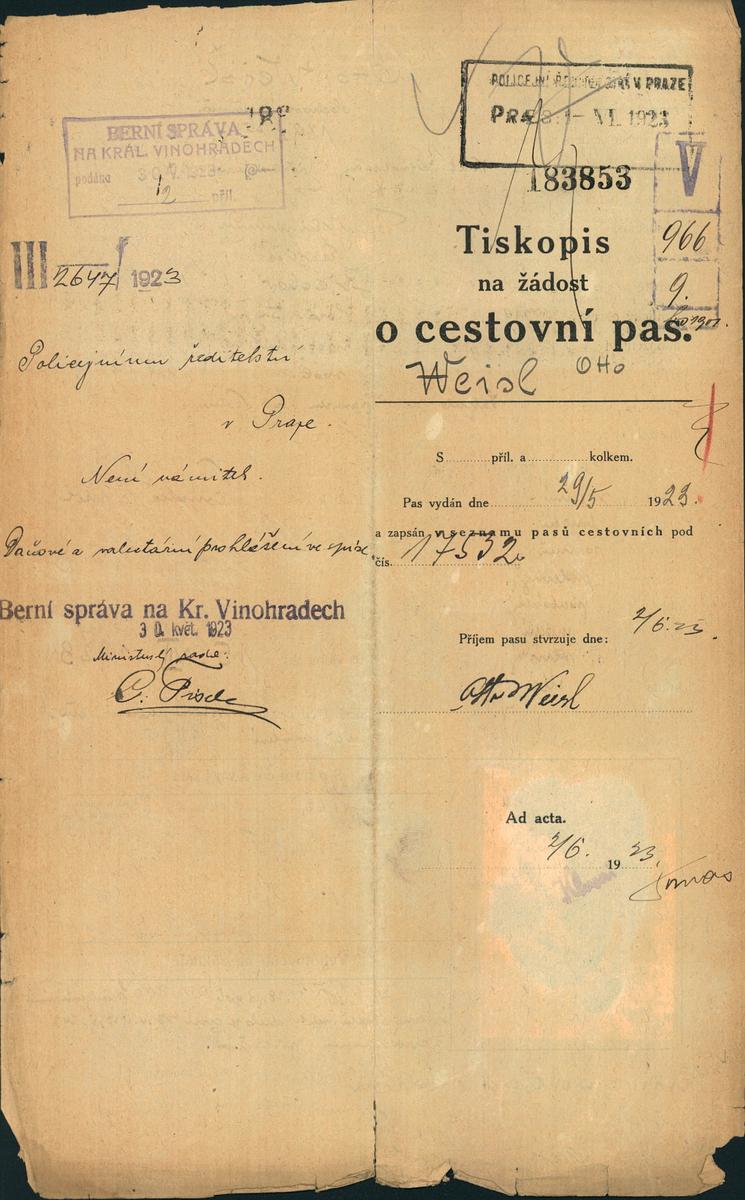 BERNÍ SPRÁVA
NA KRÁL. VINOHRADECH
podáno 30 V. 1923
1/2 příl.
III 2647/ 1923
Policejnímu ředitelství
v Praze.
Není námitek.
Daňové a valutární prohlášení ve spise
Berní správa na Kr. Vinohradech
30. květ. 1923
Ministerský rada:
POLICEJNÍ ŘEDITELSTVÍ V PRAZE
1 - VI. 1923
183853
V
966
9.
Tiskopis
na žádost
o cestovní pas.
Weisl Otto
S příl. a kolkem.
Pas vydán dne 29/5 1923.
a zapsán v seznamu pasů cestovních pod
čís. 17532
Příjem pasu stvrzuje dne: 2/6. 23.
Otto Weisl
Ad acta.
2/6. 1923.